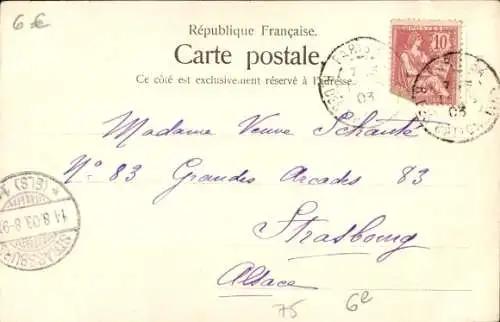 6 €
République Française.
Carte postale.
Ce côté est exclusivement réservé à l'adresse.
10
PARIS
03
03
Madame Veuve Schauté
No 83 Grandes Arcades 83
Strasbourg
Alsace
STRASSBURG
14.8.03.8-9
(ELS)
75
6e